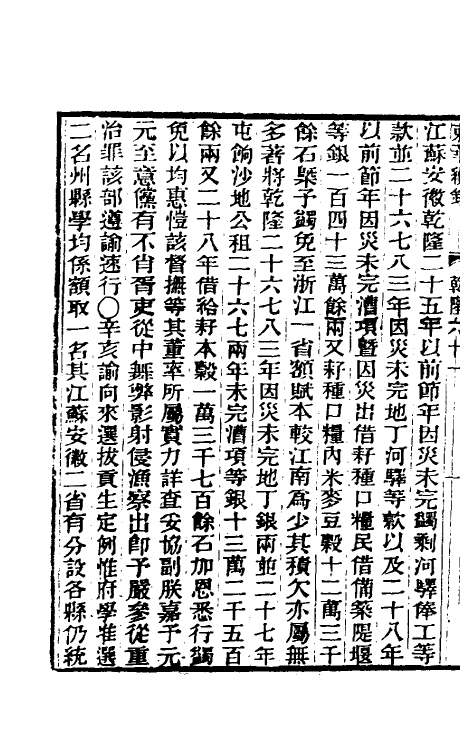 江蘇安徽乾隆二十五年以前節年因災未完蠲剩河驛俸工等
款並二十六七八三年因災未完地丁河驛等款以及二十八年
以前節年因災未完漕項暨因災出借籽種口糧民借備築隄堰
等銀一百四十三萬餘兩又籽種口糧內米麥豆穀十二萬三千
餘石槩予蠲免至浙江一省額賦本較江南爲少其積欠亦屬無
多著將乾隆二十六七八三年因災未完地丁銀兩並二十七年
屯餉沙地公租二十六七兩年未完漕項等銀十三萬二千五百
餘兩又二十八年借給籽本穀一萬三千七百餘石加恩悉行蠲
免以均惠愷該督撫等其董率所屬實力詳查妥協副朕嘉予元
元至意儻有不肖胥吏從中舞弊影射侵漁察出卽予嚴參從重
治罪該部遵諭速行○辛亥諭向來選拔貢生定例惟府學准選
二名州縣學均係額取一名其江蘇安徽二省有分設各縣仍統